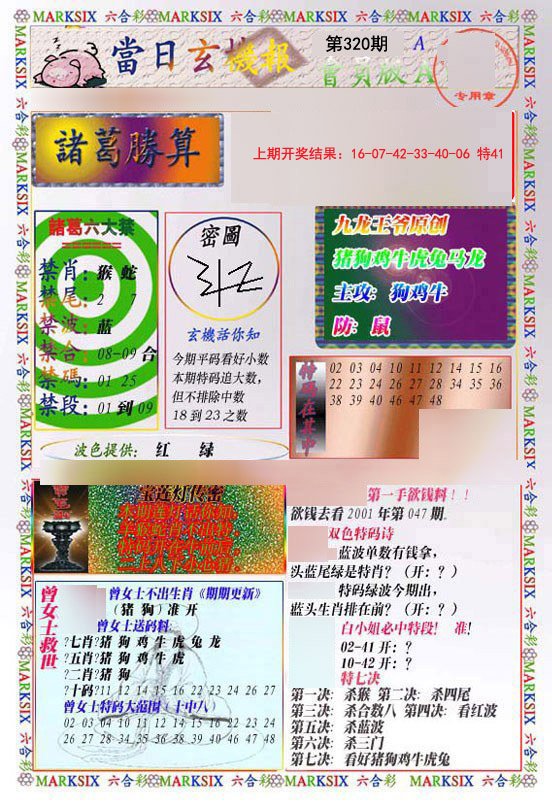 MARKSIX 六合彩 MARKSIX 六合彩 MARKSIX 六合彩 MARKSIX 六合彩
當日玄機報
第320期
A
會員版A
专用章
諸葛勝算
上期开奖结果：16-07-42-33-40-06 特41
諸葛六大禁
禁肖：猴 蛇
禁尾：2 7
禁波：蓝
禁合：08-09 合
禁碼：01 25
禁段：01 到 09
密圖
玄機話你知
今期平码看好小数
本期特码追大数，
但不排除中数
18 到 23 之数
九龙王爷原创
猪狗鸡牛虎兔马龙
主攻：狗鸡牛
防：鼠
特码在其中
02 03 04 10 11 12 14 15 16
22 23 24 26 27 28 34 35 36
38 39 40 46 47 48
波色提供： 红 绿
宝莲灯传密
第一手欲钱料！！
欲钱去看 2001 年第 047 期.
双色特码诗
蓝波单数有钱拿，
头蓝尾绿是特肖？（开：？）
特码绿波今期出，
蓝头生肖排在前？（开：？）
白小姐必中特段！ 准！
02-41 开：？
10-42 开：？
特七决
第一决：杀猴 第二决：杀四尾
第三决：杀合数八 第四决：看红波
第五决：杀蓝波
第六决：杀三门
第七决：看好猪狗鸡牛虎兔
曾女士救世
曾女士不出生肖《期期更新》
（猪 狗）准 开
曾女士送码料：
?七肖?猪 狗 鸡 牛 虎 兔 龙
?五肖?猪 狗 鸡 牛 虎
?二肖?猪 狗
?十码?11 12 14 15 16 22 23 24 26 27
曾女士特码大范围（十中八）
02 03 04 10 11 12 14 15 16 22 23 24
26 27 28 34 35 36 38 39 40 46 47 48
MARKSIX 六合彩 MARKSIX 六合彩 MARKSIX 六合彩 MARKSIX 六合彩